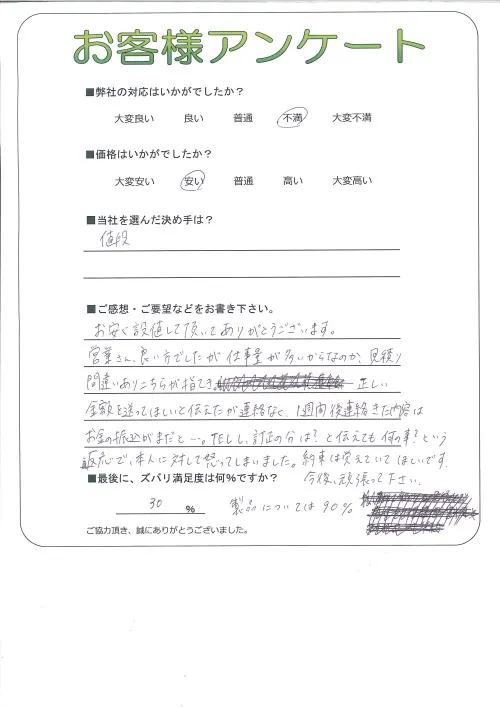 お客様アンケート
■弊社の対応はいかがでしたか？
大変良い 良い 普通 不満 大変不満
■価格はいかがでしたか？
大変安い 安い 普通 高い 大変高い
■当社を選んだ決め手は？
値段
■ご感想・ご要望などをお書き下さい。
お安く設値して頂いてありがとうございます。
営業さん、良い方でしたが仕事量が多いからなのか、見積り
間違いありこちらが指てき。 正しい
金額を送ってほしいと伝えたが連絡なく、1週間後連絡きた内容は
お金の振込がまだと…。TELし、訂正の分は？と伝えても何の事？という
返応で、本人に対して怒ってしまいました。約束は覚えていてほしいです。
■最後に、ズバリ満足度は何%ですか？ 今後、頑張って下さい。
30 % 製品については90%
ご協力頂き、誠にありがとうございました。